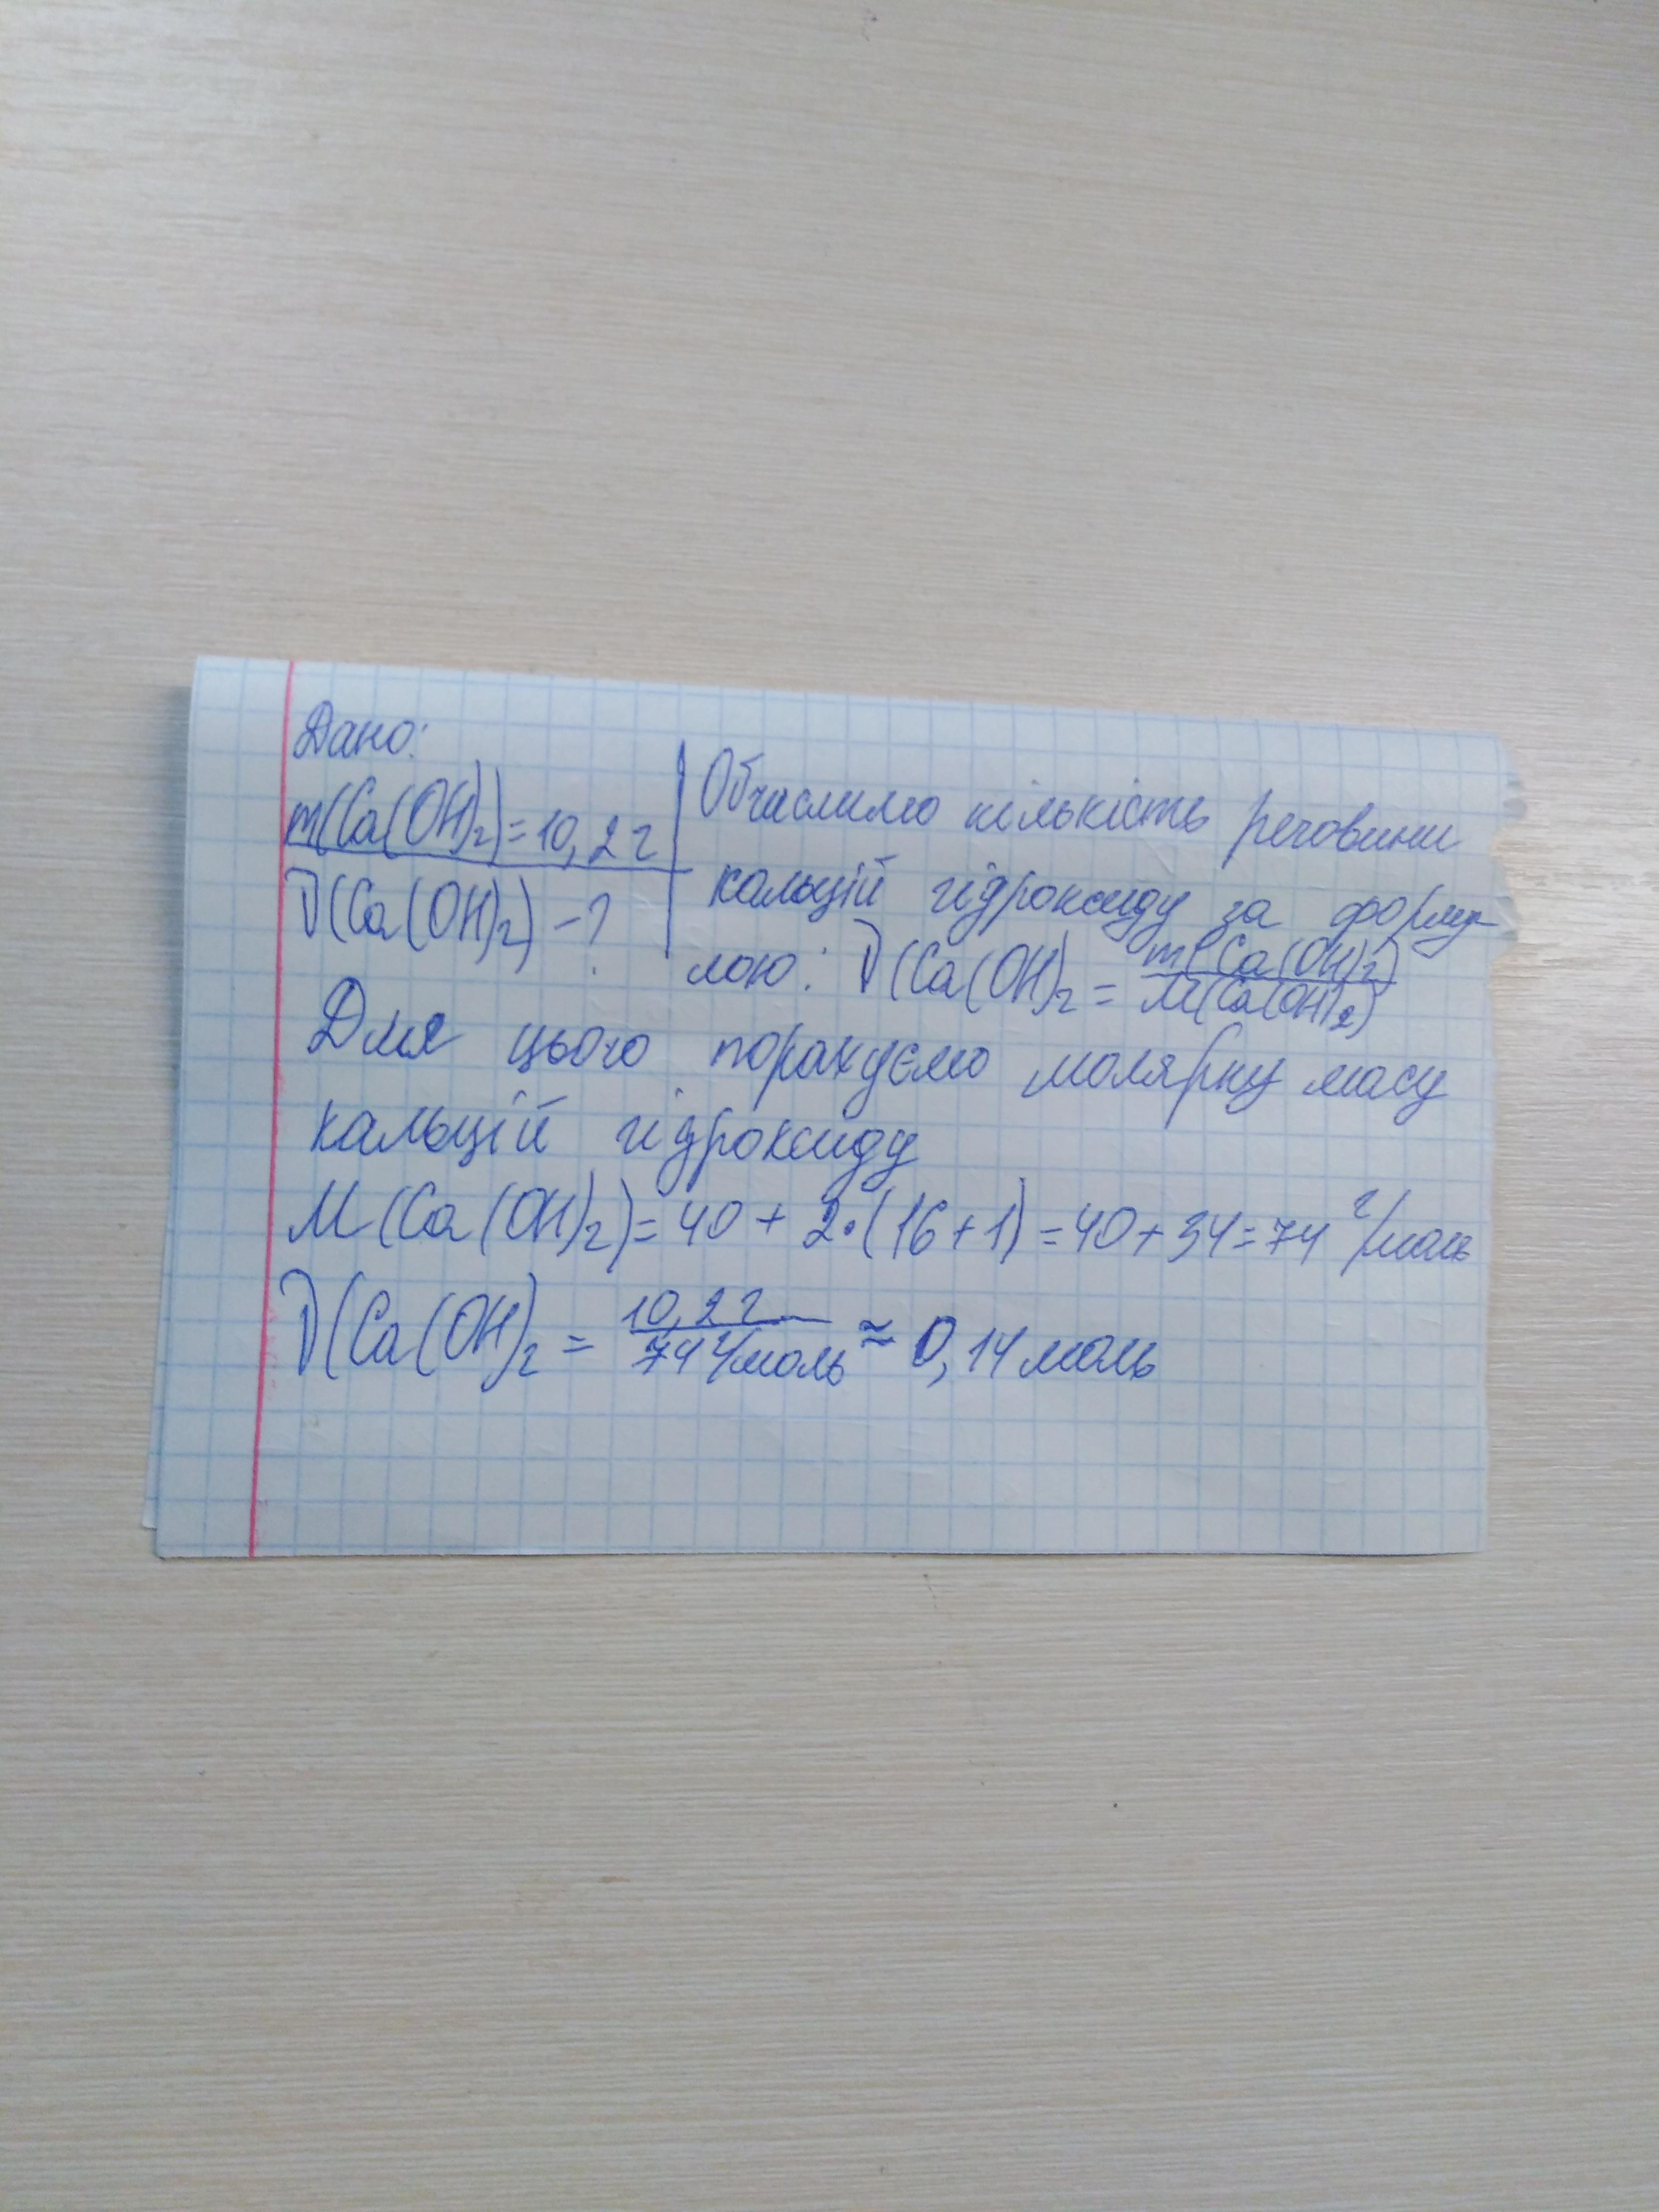 Дано:
m(Ca(OH)₂)=10,2 г
ν(Ca(OH)₂) - ?
Обчислимо кількість речовини
кальцій гідроксиду за форму-
лою: ν(Ca(OH)₂ = m(Ca(OH)₂) / M(Ca(OH)₂)
Для цього порахуємо молярну масу
кальцій гідроксиду
M(Ca(OH)₂)=40+2·(16+1)=40+34=74 г/моль
ν(Ca(OH)₂ = 10,2 г / 74 г/моль ≈ 0,14 моль